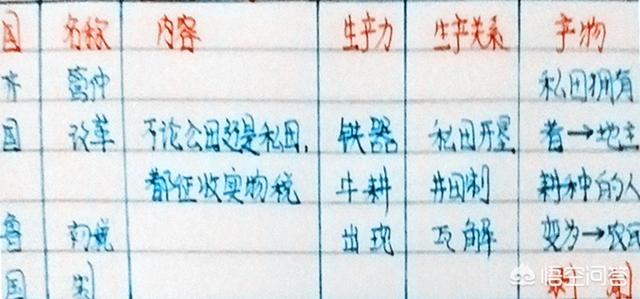 国 名称 内容 生产力 生产关系 产物
齐 管仲 私田拥有
国 改革 不论公田还是私田, 铁器 私田开垦 者→地主
都征收实物税 牛耕 井田制 耕种的人
鲁 初税 出现 瓦解 变为→农民
国
悟空问答